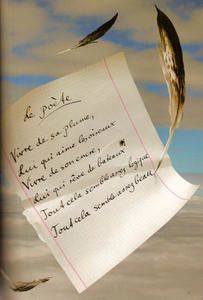 Le poète
Vivre de sa plume,
Lui qui aime les oiseaux
Vivre de son encre,
Lui qui rêve de bateaux
Tout cela semble assez logique
Tout cela semble assez beau